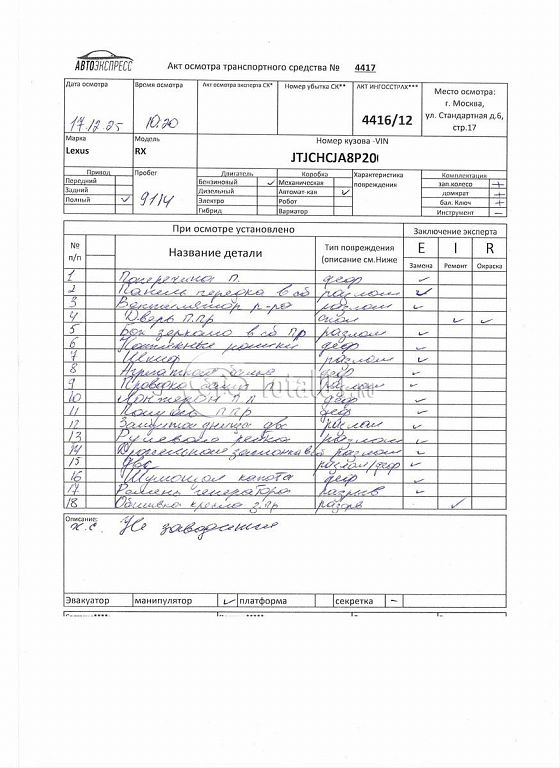 АВТОЭКСПРЕСС
Акт осмотра транспортного средства № 4417
Дата осмотра Время осмотра Акт осмотра эксперта СК* Номер убытка СК** АКТ ИНГОССТРАХ*** Место осмотра:
17.12.25 10:20 4416/12 г. Москва,
ул. Стандартная д.6,
стр.17
Марка Модель Номер кузова -VIN
Lexus RX JTJCHCJA8P20
Привод Пробег Двигатель Коробка Характеристика повреждения Комплектация
Передний Бензиновый ✓ Механическая зап.колесо +
Задний Дизельный Автомат-кая ✓ домкрат +
Полный ✓ 9114 Электро Робот бал. Ключ +
Гибрид Вариатор Инструмент –
При осмотре установлено Заключение эксперта
№ п/п Название детали Тип повреждения (описание см.Ниже E I R
Замена Ремонт Окраска
1 Поперечина П. деф ✓
2 Панель передка в сб разлом ✓
3 Вентилятор р-ра разлом ✓
4 Дверь П.Пр ✓ ✓
5 Бок зеркало в сб пр разлом ✓
6 деф ✓
7 Шкив разлом ✓
8 деф ✓
9 Проводка разлом ✓
10 Лонжерон П.Л деф ✓
11 П.Пр деф ✓
12 Защита днища двс разлом ✓
13 разлом ✓
14 разлом ✓
15 двс разлом/деф ✓
16 Шумоизол капота деф ✓
17 Ремень генератора разрыв ✓
18 Обшивка кресла З.Пр разрв ✓
Описание:
х.с. Не заводится
Эвакуатор манипулятор ✓ платформа секретка –